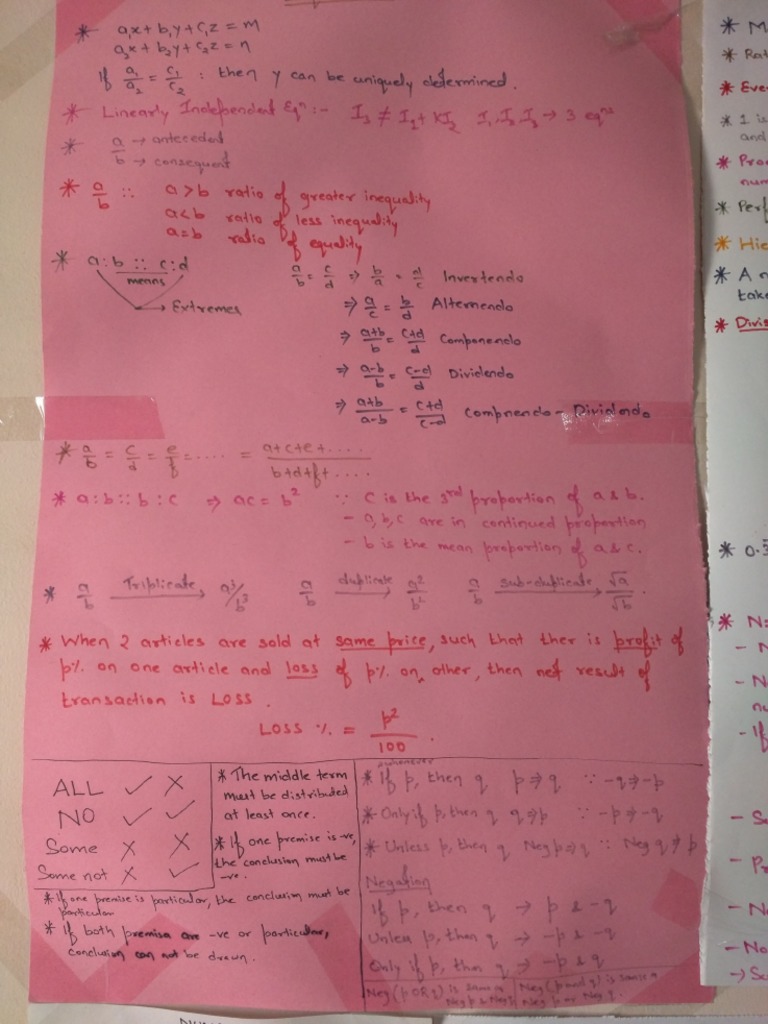 * a₁x + b₁y + c₁z = m
a₂x + b₂y + c₂z = n
If a₁/a₂ = c₁/c₂ : then y can be uniquely determined.
* Linearly Independent Eqⁿ :- I₃ ≠ I₁ + KI₂ I₁, I₂, I₃ → 3 eqⁿˢ
* a/b → antecedent
→ consequent
* a/b :: a>b ratio of greater inequality
a<b ratio of less inequality
a=b ratio of equality
* a:b :: c:d
means
→ Extremes
a/b = c/d ⇒ b/a = d/c Invertendo
⇒ a/c = b/d Alternendo
⇒ a+b/b = c+d/d Componendo
⇒ a-b/b = c-d/d Dividendo
⇒ a+b/a-b = c+d/c-d Compnendo - Dividendo
* a/b = c/d = e/f = ..... = a+c+e+..../b+d+f+....
* a:b::b:c ⇒ ac = b² ∵ c is the 3rd proportion of a & b.
- a,b,c are in continued proportion
- b is the mean proportion of a & c.
* a/b Triplicate → a³/b³ a/b duplicate → a²/b² a/b sub-duplicate → √a/√b.
* When 2 articles are sold at same price, such that ther is profit of
p% on one article and loss of p% on other, then net result of
transaction is LOSS.
LOSS % = p²/100.
ALL ✓ ×
NO ✓ ✓
Some × ×
Some not × ✓
* The middle term
must be distributed
at least once.
* If one premise is -ve,
the conclusion must be
-ve.
* If one premise is particular, the conclusion must be
particular
* If both premise are -ve or particular,
conclusion can not be drawn.
whenever
* If p, then q p⇒q ∵ -q⇒-p
* Only if p, then q q⇒p ∵ -p⇒-q
* Unless p, then q Neg p⇒q ∵ Neg q⇒p
Negation
If p, then q → p & -q
Unless p, then q → -p & -q
Only if p, then q → -p & q
Neg (p OR q) is same as
Neg p & Neg q
Neg (p and q) is same as
Neg p or Neg q.
* M
* Rat
* Eve
* 1 is
and
* Pro
num
* Perf
* Hie
* A n
take
* Divis
* 0.3
* N
- N
- No
nu
- If
- S
- Pr
- N
- No
→ S